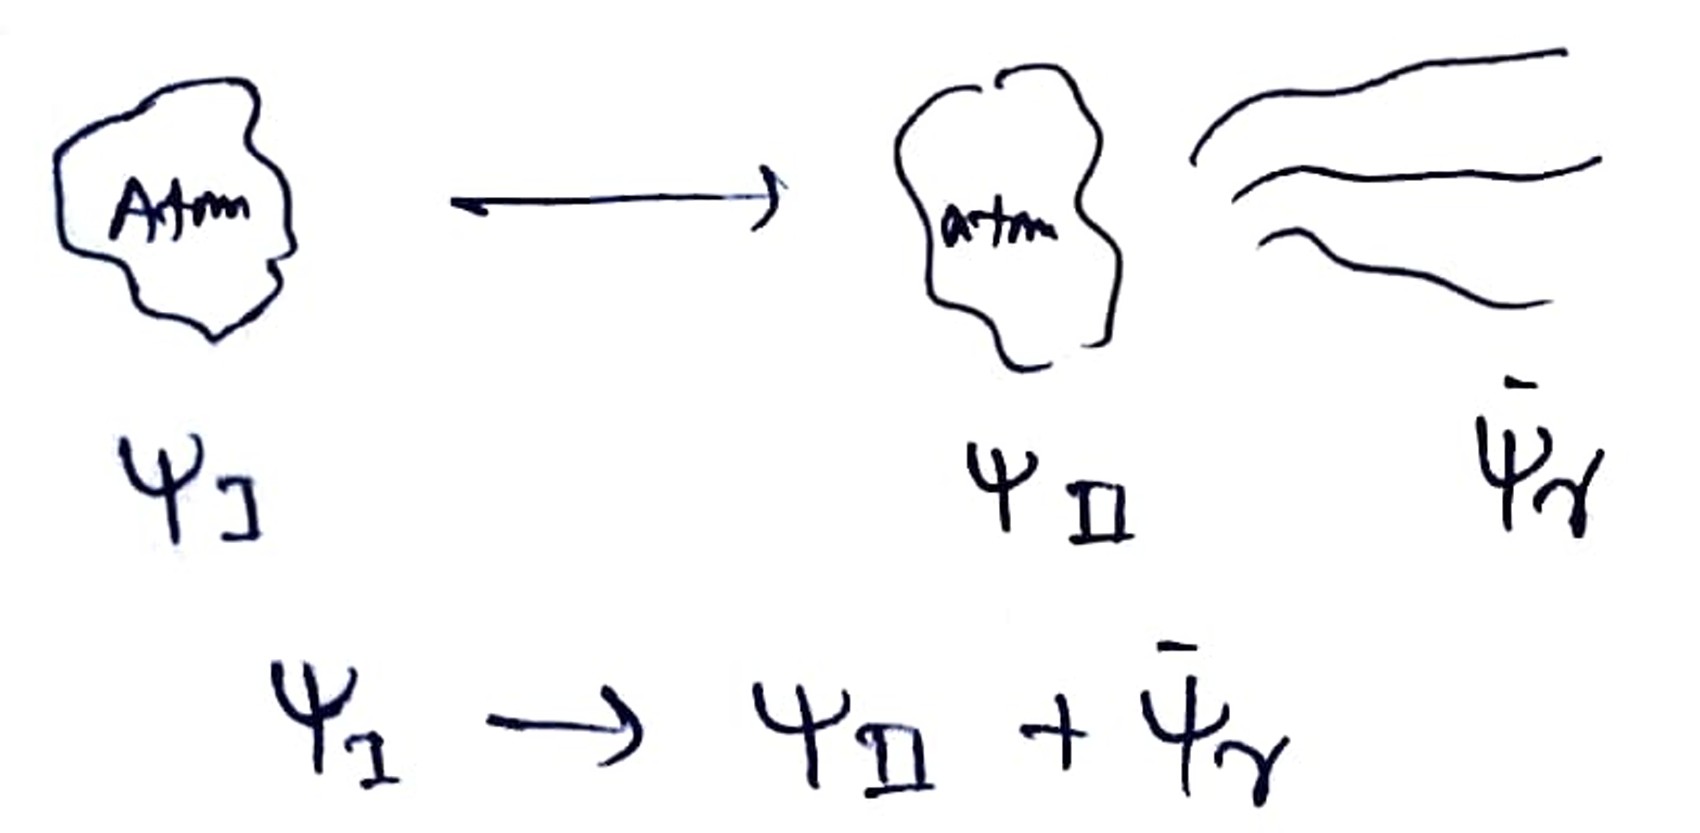 Atom → atom
Ψ_I Ψ_II Ψ̄_γ
Ψ_I → Ψ_II + Ψ̄_γ